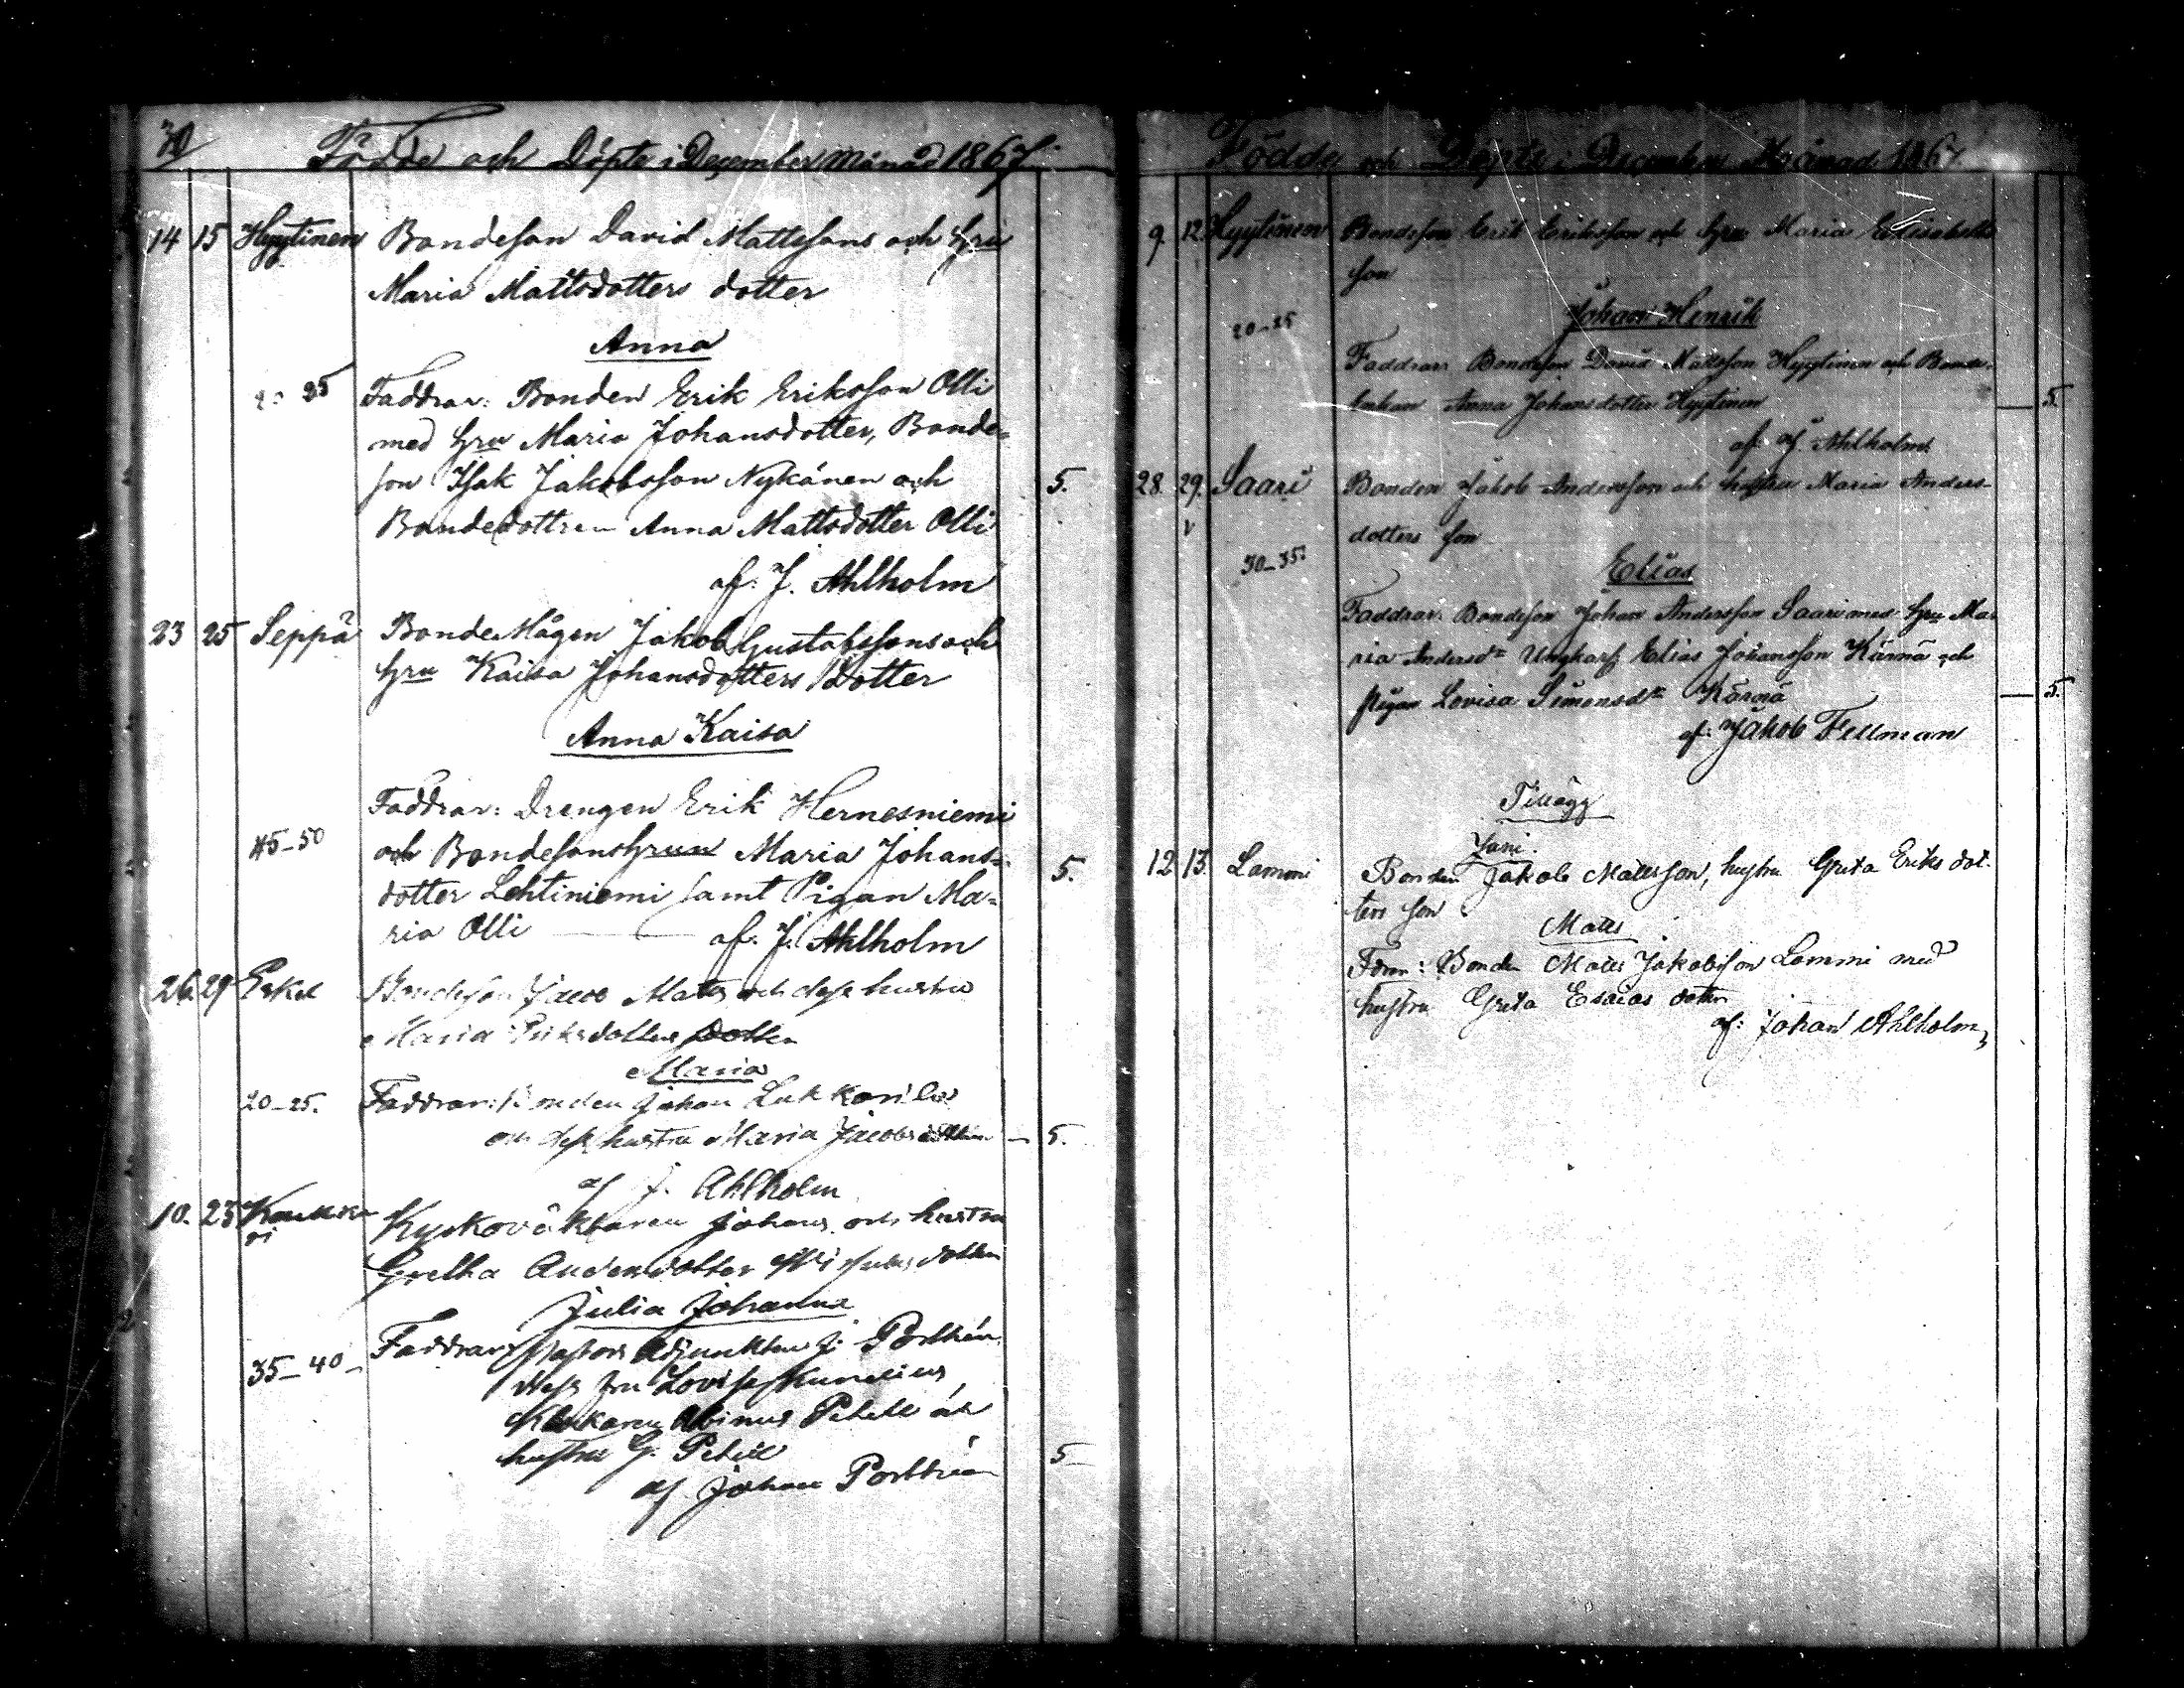 30
Födde och Döpte i December Månad 1867.
14 15 Hyytinen Bondeson David Mattssons och Hru
Maria Mattsdotters dotter
Anna
25 Faddrar: Bonden Erik Eriksson Olli
med Hru Maria Johansdotter, Bonde=
son Isak Jakobsson Nykänen och 5.
Bondedottren Anna Mattsdotter Olli
af: J. Ahlholm
23 25 Seppä BondeMågen Jakob Gustafssons och
Hru Kaisa Johansdotters Dotter
Anna Kaisa
Faddrar: Drengen Erik Hernesniemi
45-50 och Bondesonshrun Maria Johans=
dotter Lehtiniemi samt Pigan Ma= 5.
ria Olli af: J. Ahlholm
26. 29 Eskel Bondeson Jacob Mats och dess hustru
Maria Eriksdotters Dotter
Maria
20-25. Faddrar: Bonden Johan Lukkarila
och dess hustru Maria Jacobsdotter - 5.
af J. Ahlholm
10. 23 Kyrkoväktaren Johans och hustru
Gretha Andersdotter dotter
Julia Johanna
35-40- Faddrar: Pastors Adjunkten J. Porthén
dess fru Lovisa
Klockaren Petell
hustru G. Petell 5-
af Johan Porthén
Födde och Döpte i December Månad 1867.
9. 12. Hyytinen Bondeson Erik Eriksson och Hru Maria Elisabeths
son
Johan Henrik
20-25
Faddrar: Bondeson David Matsson Hyytinen och Bonde-
Anna Johansdotter Hyytinen - 5.
af: J. Ahlholm.
28. 29. Saari Bonden Jakob Andersson och hustru Maria Anders-
v dotters son
30-35. Elias
Faddrar: Bondeson Johan Andersson Saari med Hru Ma-
ria Andersdr Ungkarl Elias Johansson Kärnä och
pigan Lovisa Simonsdr Kärnä - 5.
af: Jakob Fellman
Tillägg
Juni.
12 13. Lammi Bonden Jakob Matsson, hustru Greta Eriks dot-
ters son
Mats
Fddr: Bonden Mats Jakobsson Lammi med
hustru Greta Esaias dotter
af: Johan Ahlholm